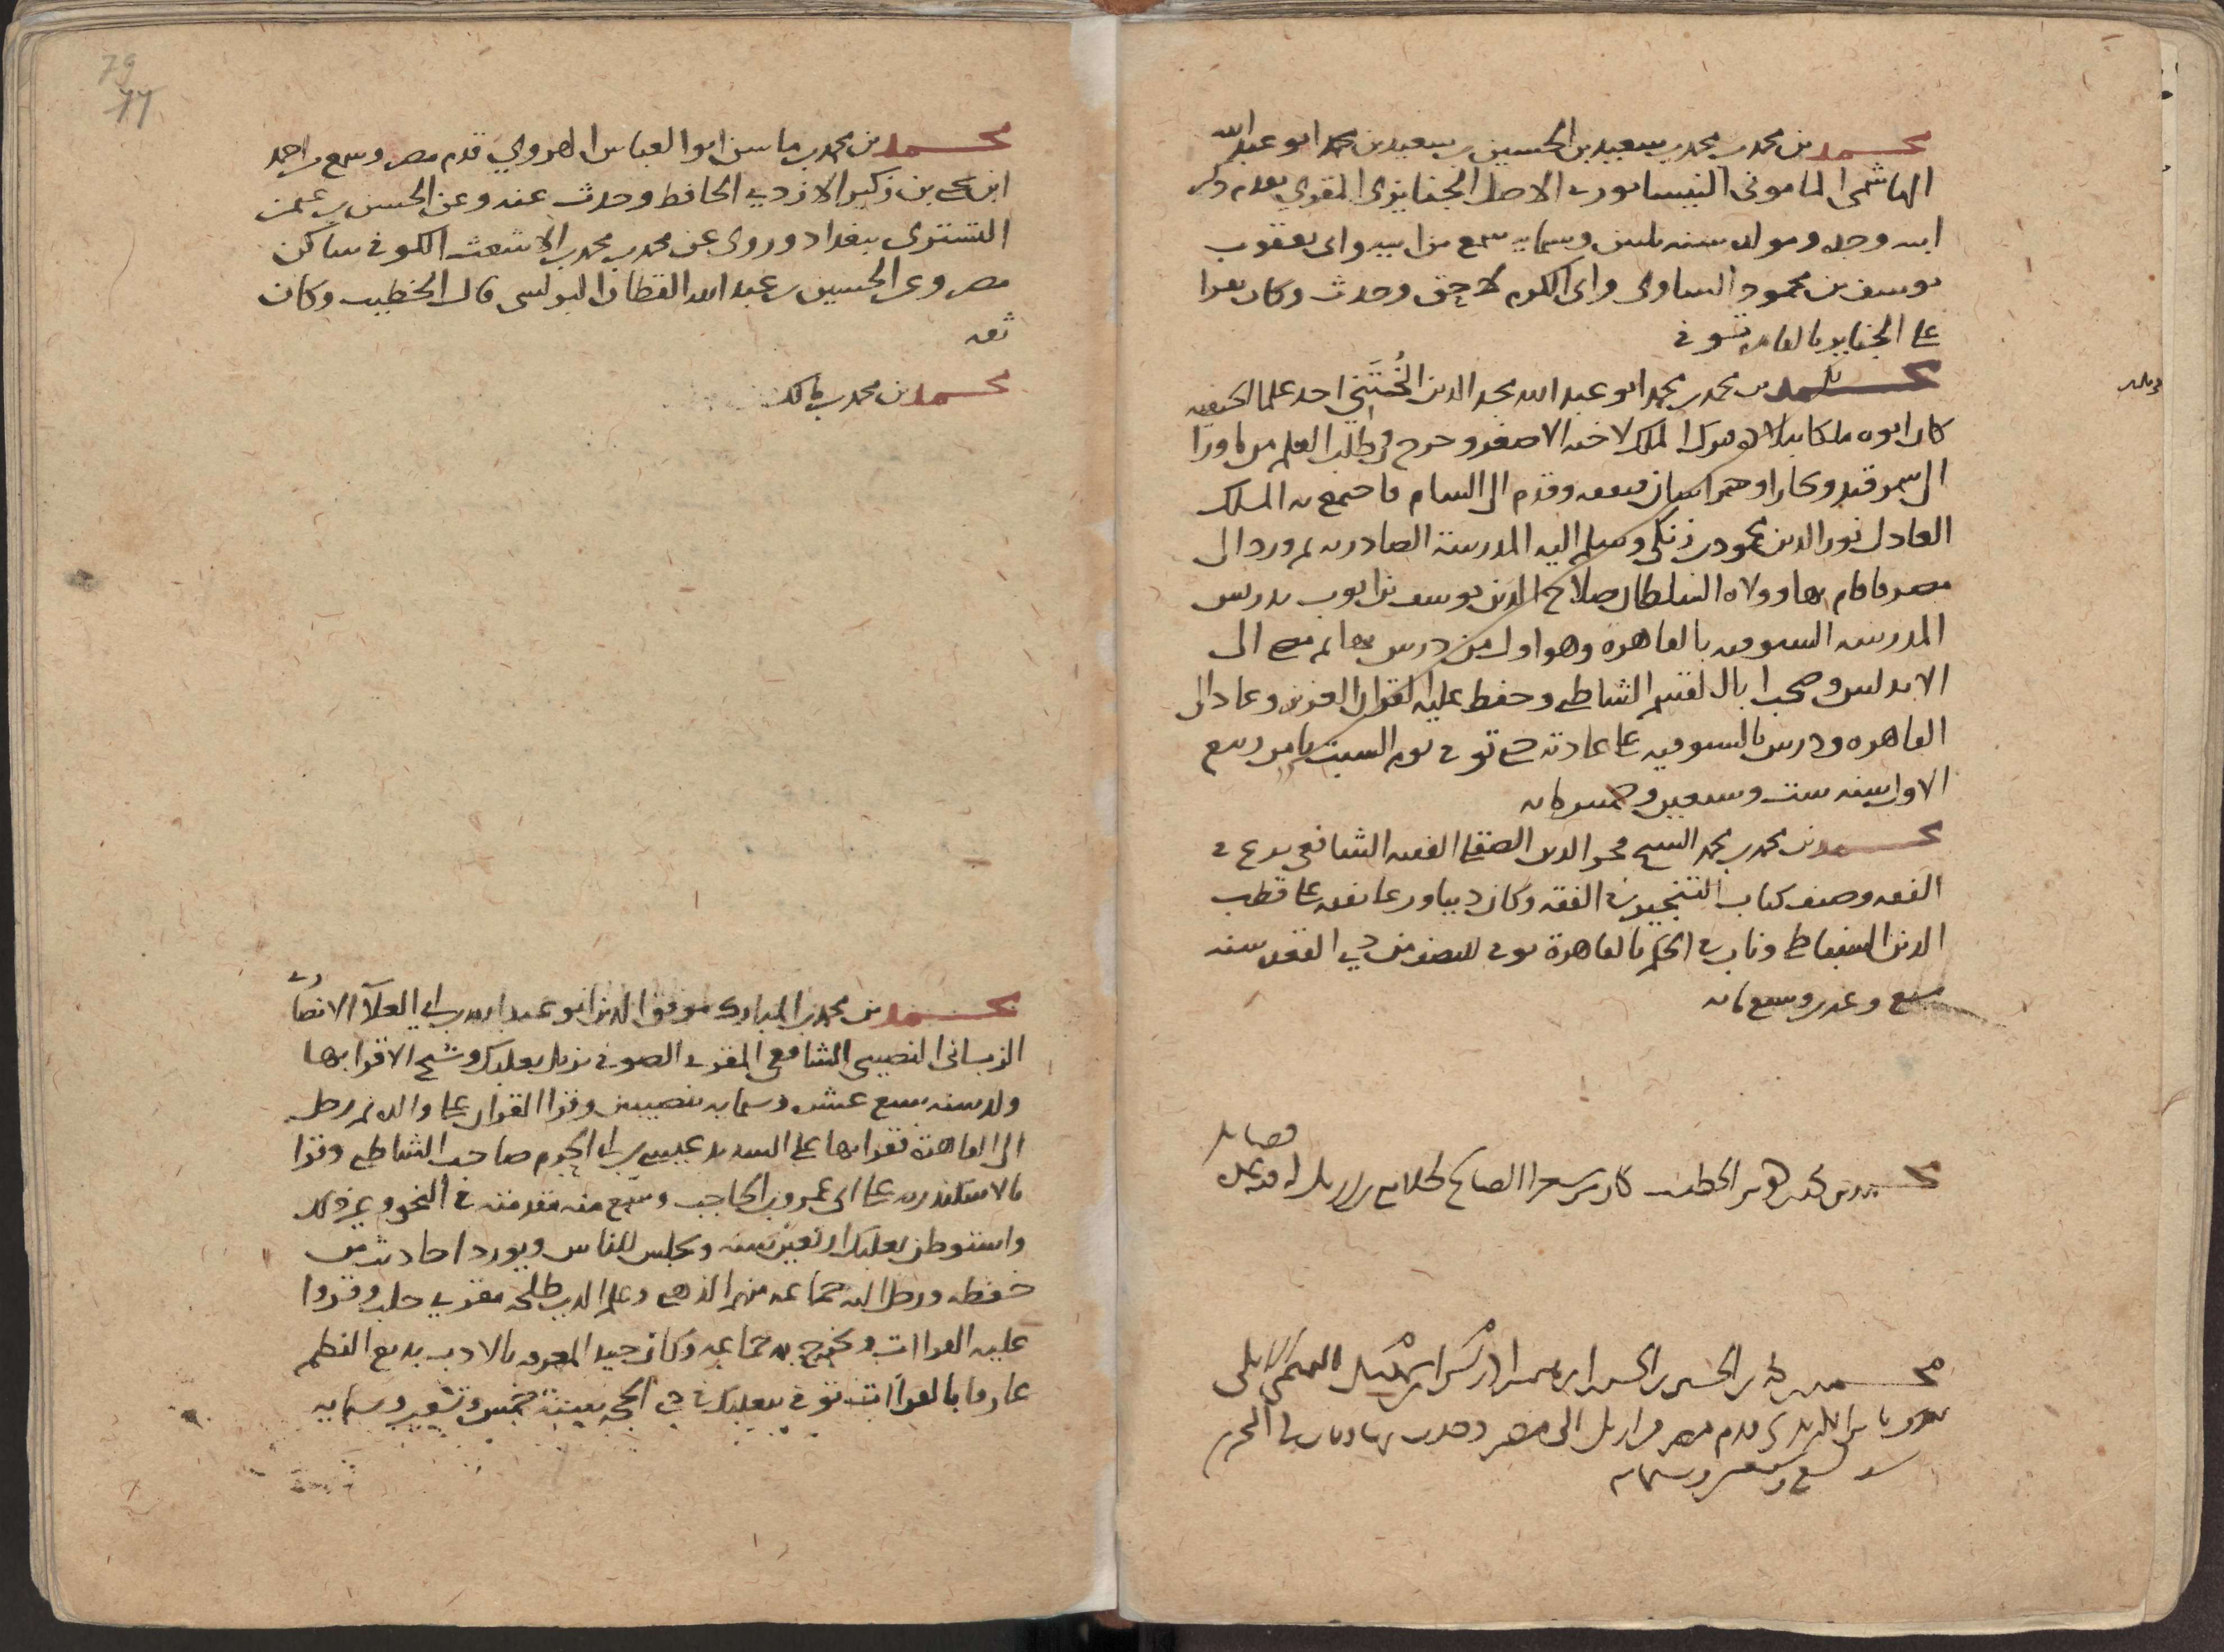 محمد بن محمد بن محمد بن سعيد بن الحسين بن سعيد بن محمد ابو عبد الله
الهاشمى المامونى النيسابورى الاصل الجنايزى المقرى تقدم ذكر
ابيه وجده ومولده سنه ثلثين وستمايه سمع من ابيه وابى يعقوب
يوسف بن محمود الساوى وابى الكرم لاحق وحدث وكان يقرا
على الجنايز بالقاهره توفى
محمد بن محمد بن محمد ابو عبد الله مجد الدين الخُتَنى احد علما الحنفيه
كان ابوه ملكا ببلاده فترك الملك لاخيه الاصغر وخرج فى طلب العلم من بلاده
الى سمرقند وبخارا وخراسان فتفقه وقدم الى الشام فاجتمع به الملك
العادل نور الدين محمود بن زنكى وسلم اليه المدرسة الصادريه ثم ورد الى
مصر فاقام بها وولاه السلطان صلاح الدين يوسف بن ايوب تدريس
المدرسه السيوفيه بالقاهره وهو اول من درس بها ثم مضى الى
الاندلس وصحب ابا القسم الشاطبى وحفظ عليه القران العزيز وعاد الى
القاهره ودرس بالسيوفيه على عادته حتى توفى يوم السبت ثامن ربيع
الاول سنه ست وسبعين وخمس مايه
محمد بن محمد بن محمد الشيخ فخر الدين الصقلى الفقيه الشافعى برع فى
الفقه وصنف كتاب التنجيز فى الفقه وكان دينا ورعا تفقه على قطب
الدين السنباطى وناب فى الحكم بالقاهرة توفى للنصف من ذى القعده سنه
سبع وعشرين وسبع مايه
قصايد
محمد بن محمد الخطيب كان من شعرا الصالح طلايع بن رزيك له فيه عدة
محمد بن محمد بن الحسين بن الحسين ابن ادريس ابن
قدم مصر من اربل الى مصر وحدث بها ومات فى المحرم
سنه تسع وسبعين وستمايه
وثلثه
79
77
محمد بن محمد بن ماسن ابو العباس الهروي قدم مصر وسمع من احمد
ابن يحيى بن زكير الازدي الحافظ وحدث عنه وعن الحسن بن عثمن
التسترى ببغداد وروى عن محمد بن محمد بن الاشعث الكوفى ساكن
مصر وعن الحسين بن عبد الله القطان البولسى قال الخطيب وكان
ثقه
محمد بن محمد بن مالك
محمد بن محمد بن المبارك موفق الدين ابو عبد الله بن ابى العلآ الانصارى
الربانى النصيبى الشافعى المقرى الصوفى نزيل بعلبك وشيخ الاقرا بها
ولد سنه سبع عشره وستمايه بنصيبين وقرا القران على والده ثم رحل
الى القاهرة فقرا بها على السديد عيسى بن ابى الحرم صاحب الشاطبى وقرا
بالاسكندريه على ابى عمرو بن الحاجب وسمع منه مقدمته فى النحو وغير ذلك
واستوطن بعلبك اربعين سنه وجلس للناس ويورد احاديث من
حفظه ورحل اليه جماعه منهم الذهبى وعلم الدين طلحه مقرى حلب وقروا
عليه القراات وتخرج به جماعه وكان جيد المعرفه بالادب بديع النظم
عارفا بالقراآت توفى ببعلبك فى ذى الحجه سنة خمس وتسعين وستمايه